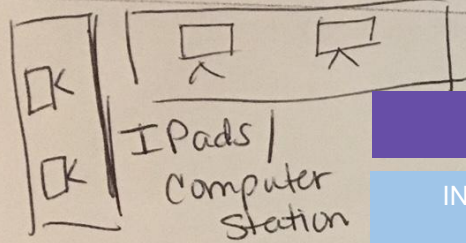 IPads /
Computer
Station
IN